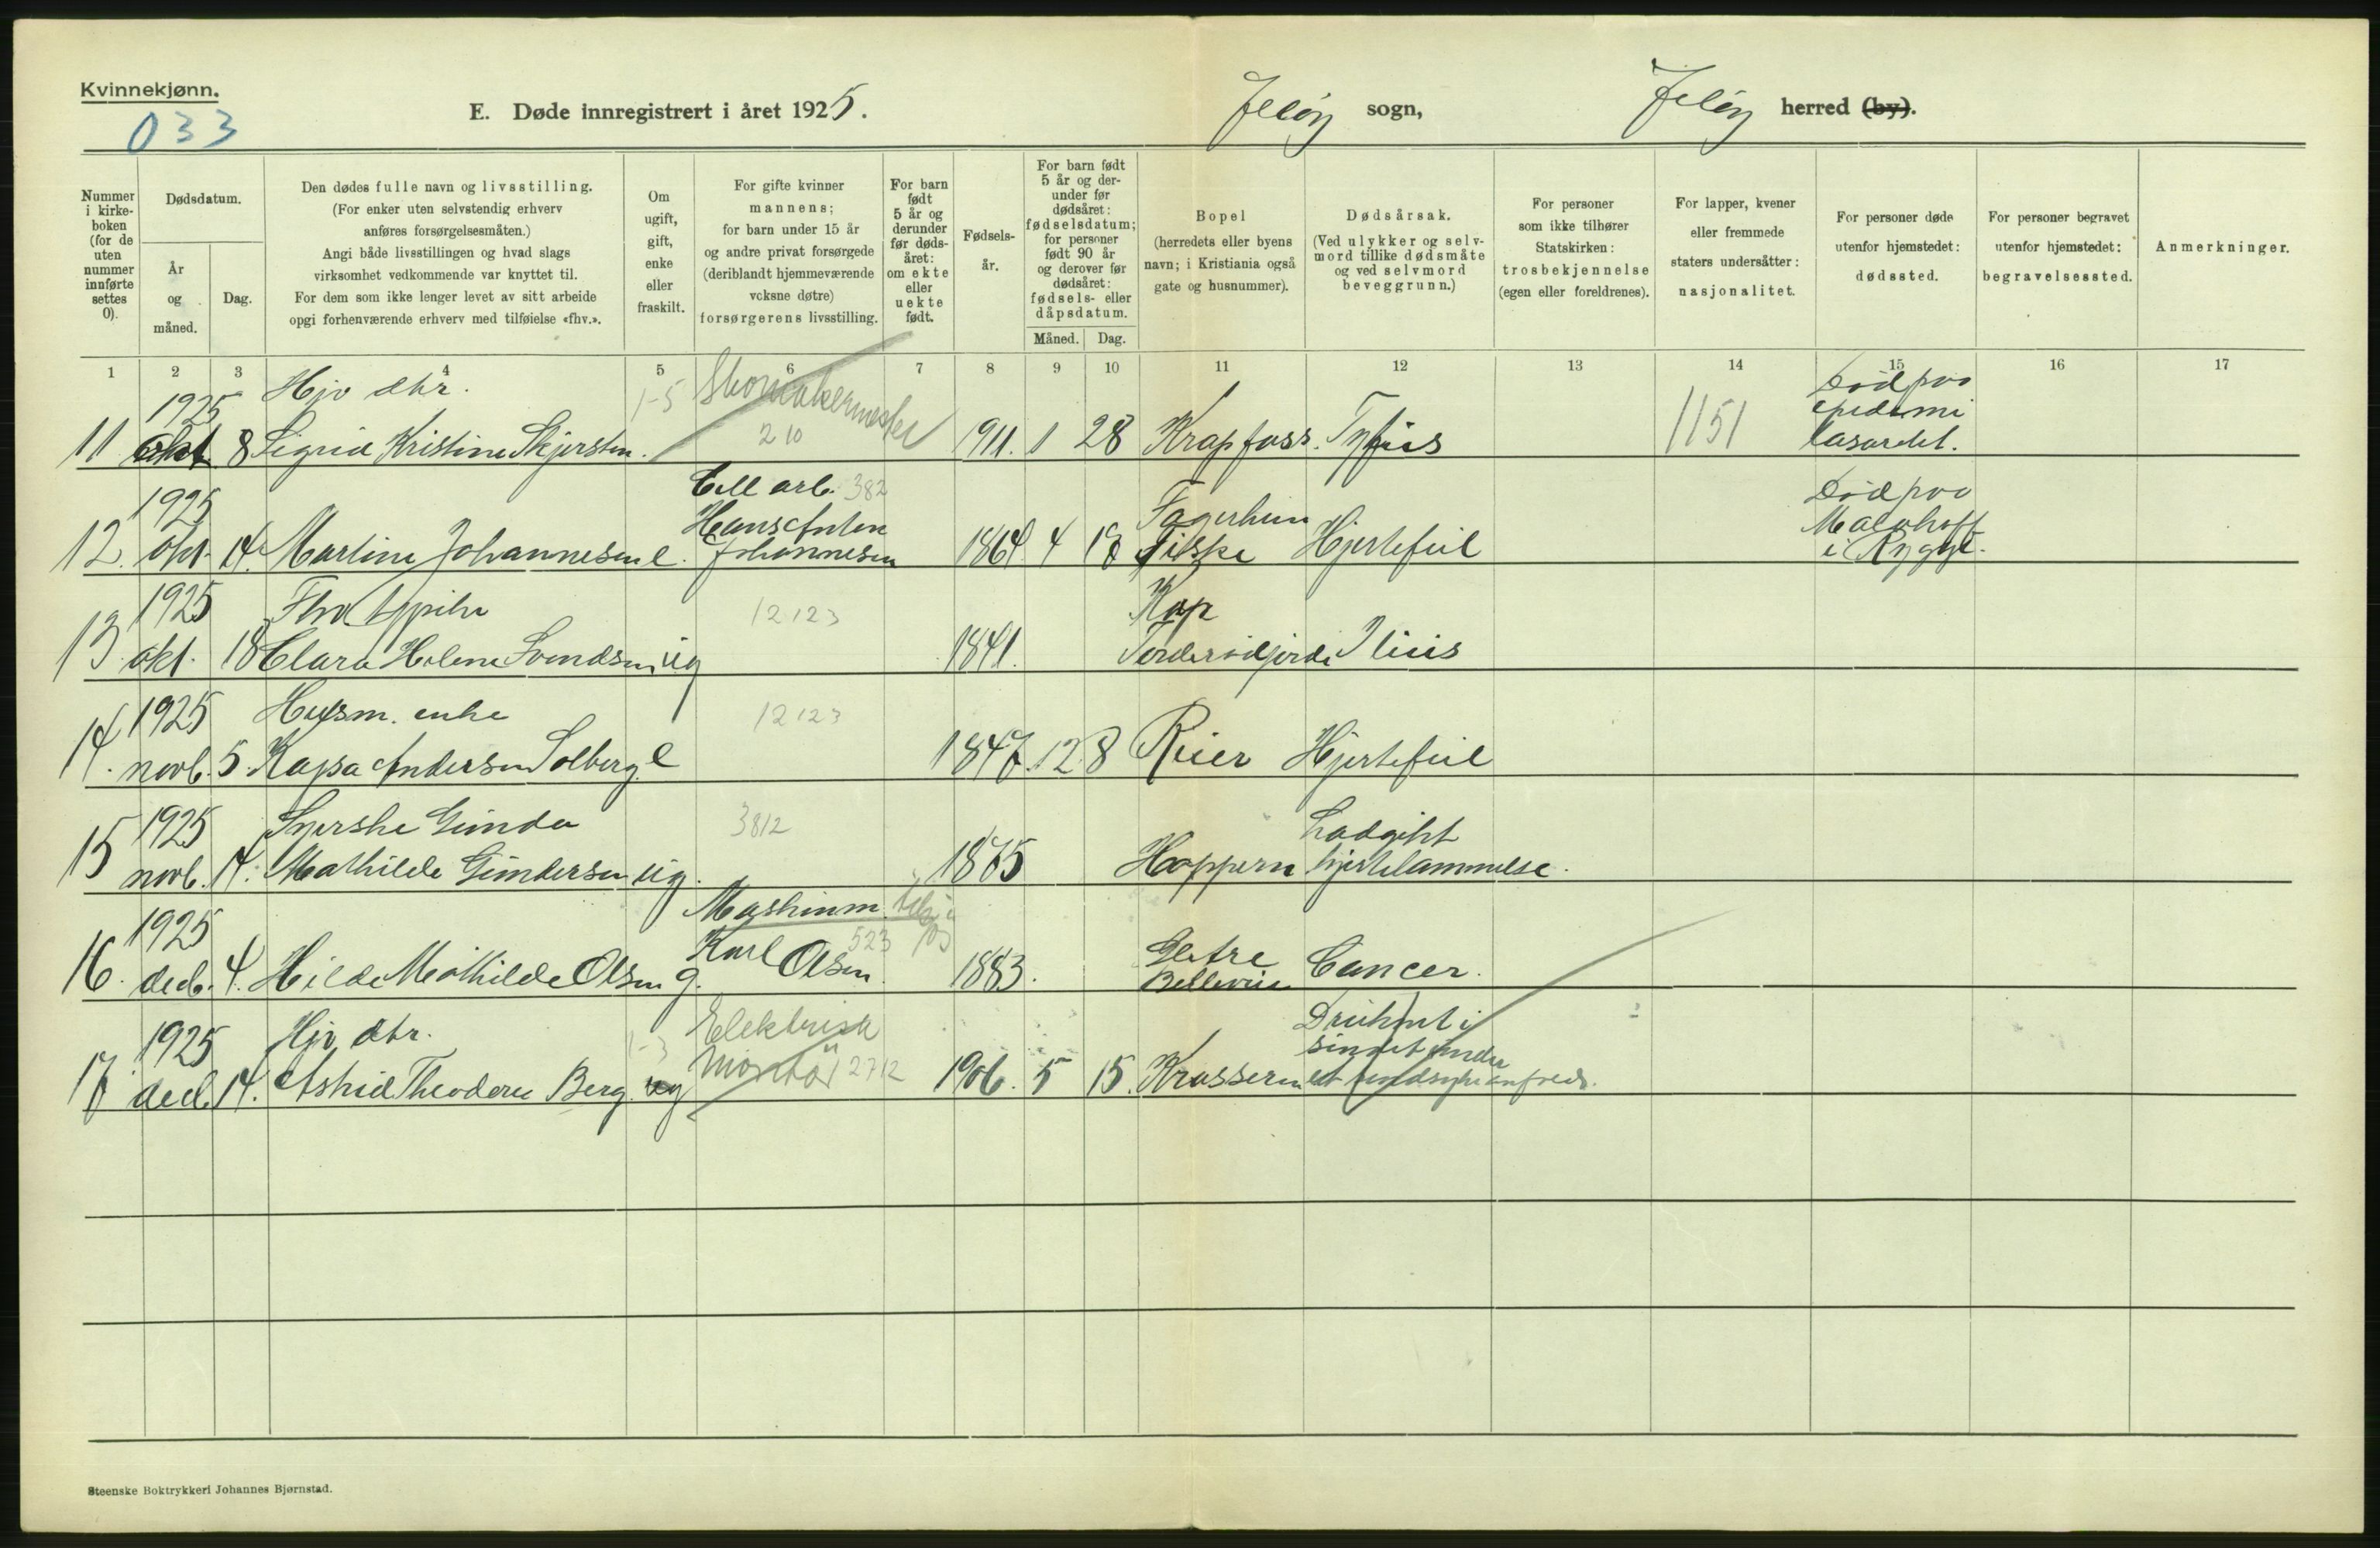 Kvinnekjønn.
033
E. Døde innregistrert i året 1925.
Jeløy sogn,
Jeløy herred (by).
Nummer i kirke-boken (for de uten nummer innførte settes 0).
Dødsdatum.
År og måned.
Dag.
Den dødes fulle navn og livsstilling.
(For enker uten selvstendig erhverv
anføres forsørgelsesmåten.)
Angi både livsstillingen og hvad slags
virksomhet vedkommende var knyttet til.
For dem som ikke lenger levet av sitt arbeide
opgi forhenværende erhverv med tilføielse «fhv.».
Om
ugift,
gift,
enke
eller
fraskilt.
For gifte kvinner
mannens;
for barn under 15 år
og andre privat forsørgede
(deriblandt hjemmeværende
voksne døtre)
forsørgerens livsstilling.
For barn
født
5 år og
derunder
før døds-
året:
om ekte
eller
uekte
født.
Fødsels-
år.
For barn født
5 år og der-
under før
dødsåret:
fødselsdatum;
for personer
født 90 år
og derover før
dødsåret:
fødsels- eller
dåpsdatum.
Måned. Dag.
Bopel
(herredets eller byens
navn; i Kristiania også
gate og husnummer).
Dødsårsak.
(Ved ulykker og selv-
mord tillike dødsmåte
og ved selvmord
beveggrunn.)
For personer
som ikke tilhører
Statskirken:
trosbekjennelse
(egen eller foreldrenes).
For lapper, kvener
eller fremmede
staters undersåtter:
nasjonalitet.
For personer døde
utenfor hjemstedet:
dødssted.
For personer begravet
utenfor hjemstedet:
begravelsessted.
Anmerkninger.
1 2 3 4 5 6 7 8 9 10 11 12 13 14 15 16 17
1925 Hjv dtr. 1-5 Skomakermester Død paa
epidemi
11 okt 8 Sigrid Kristine Skjersten. 210 1911. 1 28 Krapfoss. Tyfus 1151 lasarett.
1925 Cell arb. 382 Død paa
Hans Anton Fagerheim
12. okt. 14. Martine Johannesen e. Johannesen 1864 4 18 Tilske Hjertefeil i Rygge.
1925 Fhv 12123 Kap
13 okt. 18 Clara Helene Svendsen ug 1841. Ilius
1925 Husm. enke 12123
14. novb. 5. Kajsa Andersen Solberg e 1847. 12 8 Reier Hjertefeil
1925 Syerske Gunda 3812
15 novb. 14. Mathilde Gundersen ug. 1875 Hoppern hjertelammelse.
1925 Maskinm.
Karl Olsen 523
16. decb. 4. Hilda Mathilde Olsen g. 1883. Bellevue Cancer.
1925 Hjv dtr. 1-3 Elektrisk Druknet i
montør 2712 sundet under
17 decb. 14. Astrid Theodora Berg. ug 1906. 5 15. Krossern et sindsykeanfald.
Steenske Boktrykkeri Johannes Bjørnstad.